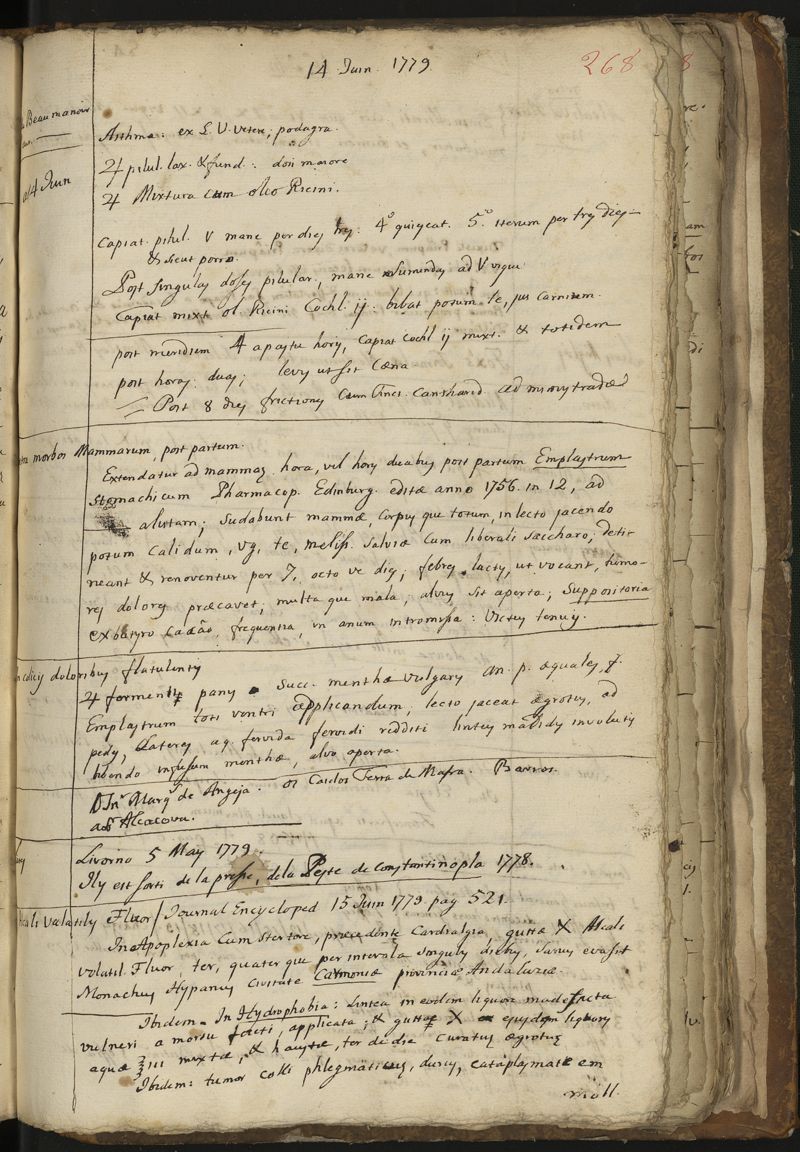 14 Juin 1779
268
Beaumanoir
14 Juin
Asthma: ex L. V. vetere; podagra.
♃ pilul. lax. & fund.: dosi maiore
♃ Mixtura cum oleo Ricini.
Capiat pilul. V mane per dies tres: 4.º quiescat. 5.º iterum per tres dies
& sicut porro.
Post singulas doses pilular, mane sumendas ad V usque
Capiat mixt. ol. Ricini Cochl. ij: bibat potum te, jus carnium.
post meridiem 4 a pastu horis, capiat Cochl ij mixt. & totidem
post horas duas; levis ut sit cæna
Post 8 dies frictiones cum tinct. Cantharid.
morbos Mammarum, post partum.
Extendatur ad mammas hora, vel horis duabus post partum Emplastrum
Stomachicum Pharmacop. Edinburg. editæ anno 1756. in 12, ad
alutam; sudabunt mammæ, corpus que totum, in lecto jacendo
potum calidum, vg. te, meliss. salviæ cum liberali saccharo; deti-
neant & renoventur per 7, octo ve dies; febres lactis, ut vocant, humo-
res dolores præcavet; multa que mala; alvus sit aperta; Suppositoria
ex butyro Cacáo, frequentia, in anum intromissa: Victus tenuis.
colicis doloribus flatulentis
♃ fermenti panis succ. menthæ vulgaris an. p. æquales, f.
Emplastrum toti ventri applicandum; lecto jaceat ægrotus, ad
pedes, Lateres aq. fervida fervidi redditi linteis madidis involutis
bibendo infusum menthæ, alvo aperta.
D. Jn.º Marq.s de Angeja. Carlos Terra de Mafra. Barros.
Alcacova.
Livorno 5 May 1779.
Il y est sorti de la presse, de la Peste de Constantinopla 1778.
Alcali Volatilis Fluor / Journal Encycloped 15 Juin 1779 pag 521.
In Apoplexia cum stertore, præcedente Cardialgia, guttæ X Alcali
volatil. Fluor, ter, quater que per intervala singulis diebus, sanus evasit
Monachus Hypanus Civitate Carmoniæ provinciæ Andaluziæ.
Ibidem. In Hydrophobia: Lintea in eodem liquore madefacta
vulneri a morsu facti, applicata; & guttæ X ejusdem liquoris
aquæ ℥iii mixtæ, & haustæ, ter de die curatus ægrotus
Ibidem: tumor colli phlegmaticus, durus, cataplasmate em
moll.